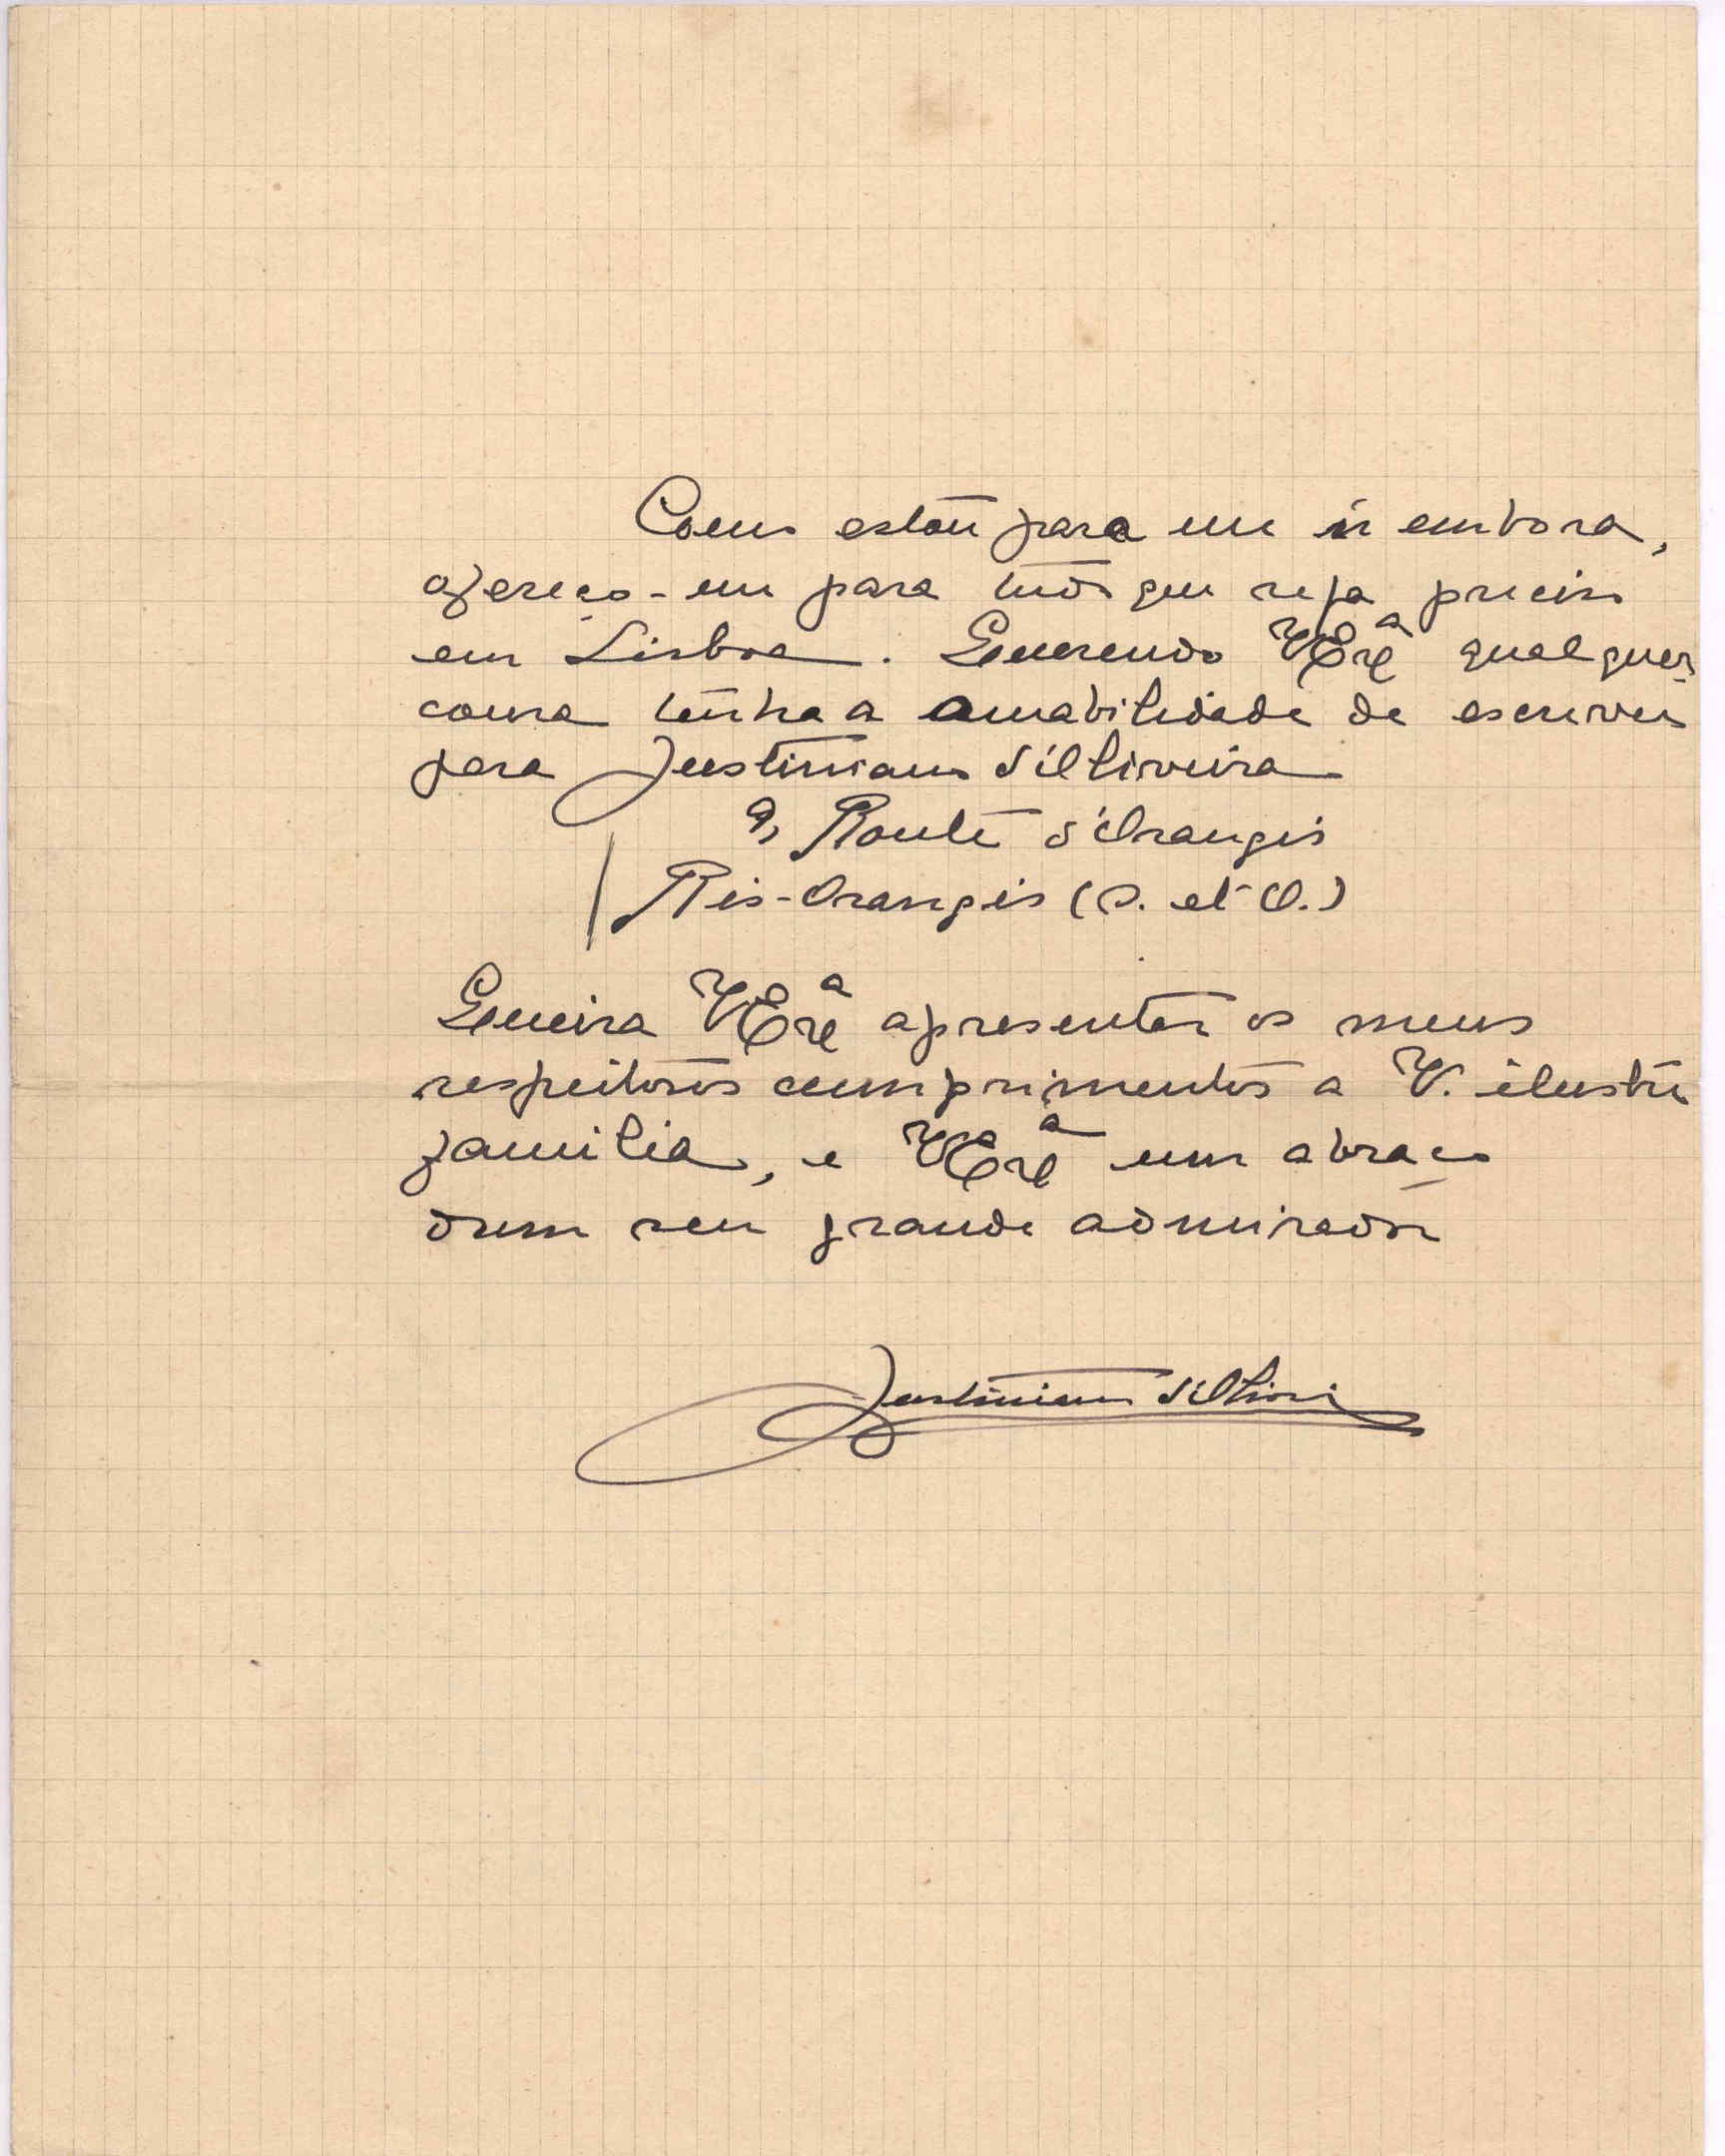 Como estou para me ir embora,
ofereço-me para tudo que seja preciso
em Lisboa. Querendo VExª qualquer
cousa tenha a amabilidade de escrever
para Justiniano d'Oliveira
9, Route d'Orangis
Ris-Orangis (S. et O.)
Queira VExª apresentar os meus
respeitosos cumprimentos a V. ilustre
familia, e VExª um abraço
dum seu grande admirador
Justiniano d'Oliveira